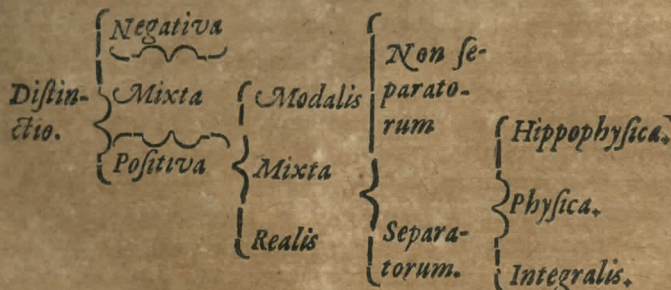 Distin-
ctio.
Negativa
Mixta
Positiva
Modalis
Mixta
Realis
Non se-
parato-
rum
Separa-
torum.
Hippophysica.
Physica.
Integralis.